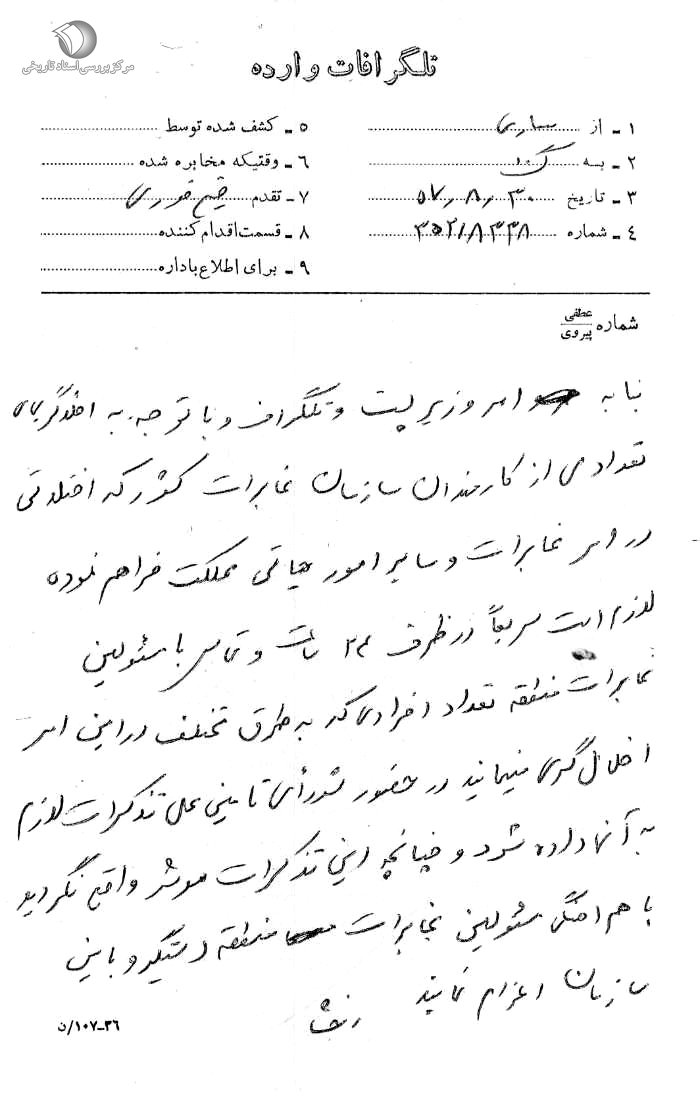 مرکز بررسی اسناد تاریخی
تلگرافات وارده
۱ـ از ساری
۲ـ به
۳ـ تاریخ ۵۷٫۸٫۳۰
۴ـ شماره ۳۵۲/۸۳۳۸
۵ـ کشف شده توسط
۶ـ وقتیکه مخابره شده
۷ـ تقدم خیلی فوری
۸ـ قسمت اقدام کننده
۹ـ برای اطلاع باداره
شماره عطفی
پیروی
بنا به امر وزیر پست و تلگراف و با توجه به اخلالگریهای
تعدادی از کارمندان سازمان مخابرات کشور که اختلالاتی
در امر مخابرات و سایر امور حیاتی مملکت فراهم نموده
لازم است سریعاً در ظرف ۲۴ ساعت و تماس با مسئولین
مخابرات منطقه تعداد افرادی که به طرق مختلف در این امر
اخلال گری مینمایند در حضور شورای تامینی محل تذکرات لازم
به آنها داده شود و چنانچه این تذکرات موثر واقع نگردید
با هم آهنگی مسئولین مخابرات منطقه دستگیر و باین
سازمان اعزام نمایند
۳۶-۱۰۷/ن